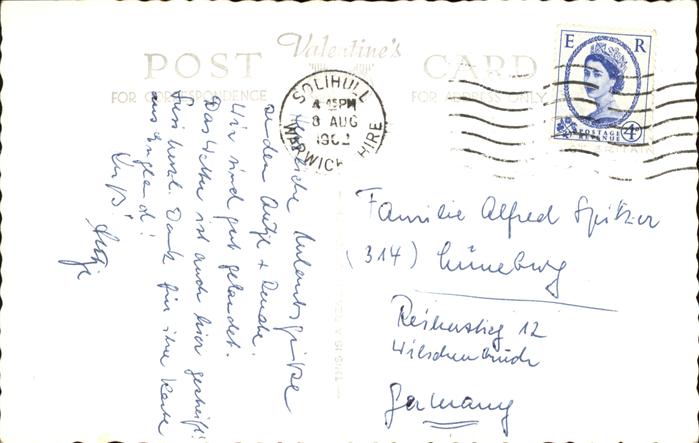 Valentine's
POST CARD
FOR CORRESPONDENCE
FOR ADDRESS ONLY
SOLIHULL
4-45PM
8 AUG
196
WARWICKSHIRE
E R
POSTAGE
REVENUE
4D
Herzliche Urlaubsgrüße
senden Antje +
Wir sind gut gelandet.
Das Wetter ist auch hier
herzl. Dank für ihre Karte
aus England!
Gruß Antje
Familie Alfred Spitzer
(314) Lüneburg
Reiherstieg 12
Wilschenbruch
Germany